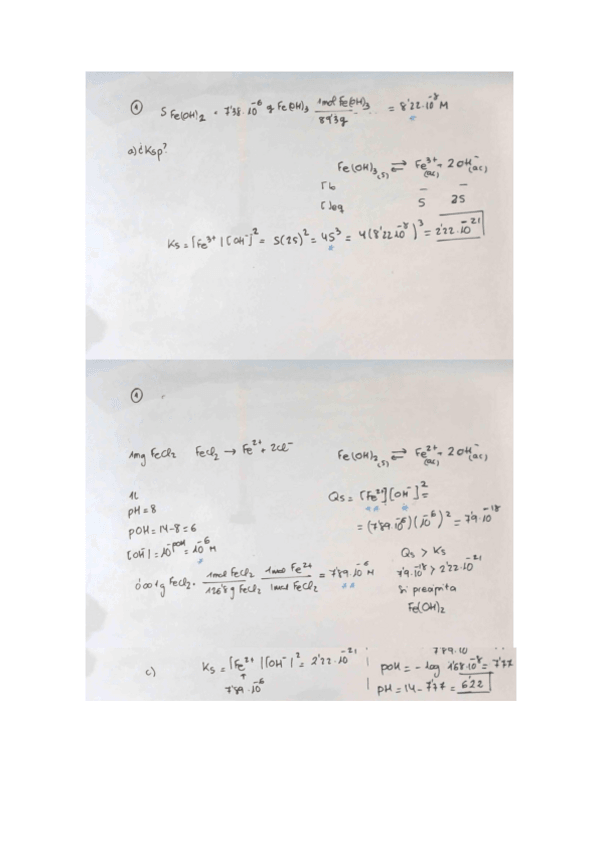 ① S Fe(OH)2 = 7'38·10^-6 g Fe(OH)3 1mol Fe(OH)3 / 89'3g = 8'22·10^-8 M
a) ¿Ksp?
Fe(OH)3(s) ⇌ Fe^3+(ac) + 2OH^-(ac)
[ ]o - -
[ ]eq S 2S
Ks = [Fe^3+][OH^-]^2 = S(2S)^2 = 4S^3 = 4(8'22·10^-8)^3 = 2'22·10^-21
①
1mg FeCl2 FeCl2 → Fe^2+ + 2Cl^- Fe(OH)2(s) ⇌ Fe^2+(ac) + 2OH^-(ac)
1L
pH = 8
pOH = 14-8 = 6
[OH^-] = 10^-pOH = 10^-6 M
0'001g FeCl2 · 1mol FeCl2 / 126'8g FeCl2 1mol Fe^2+ / 1mol FeCl2 = 7'89·10^-6 M
Qs = [Fe^2+][OH^-]^2 =
= (7'89·10^-6)(10^-6)^2 = 7'9·10^-18
Qs > Ks
7'9·10^-18 > 2'22·10^-21
Sí precipita
Fe(OH)2
c) Ks = [Fe^2+][OH^-]^2 = 2'22·10^-21
7'89·10^-6
7'89·10
pOH = -log 1'68·10^-8 = 7'77
pH = 14 - 7'77 = 6'22